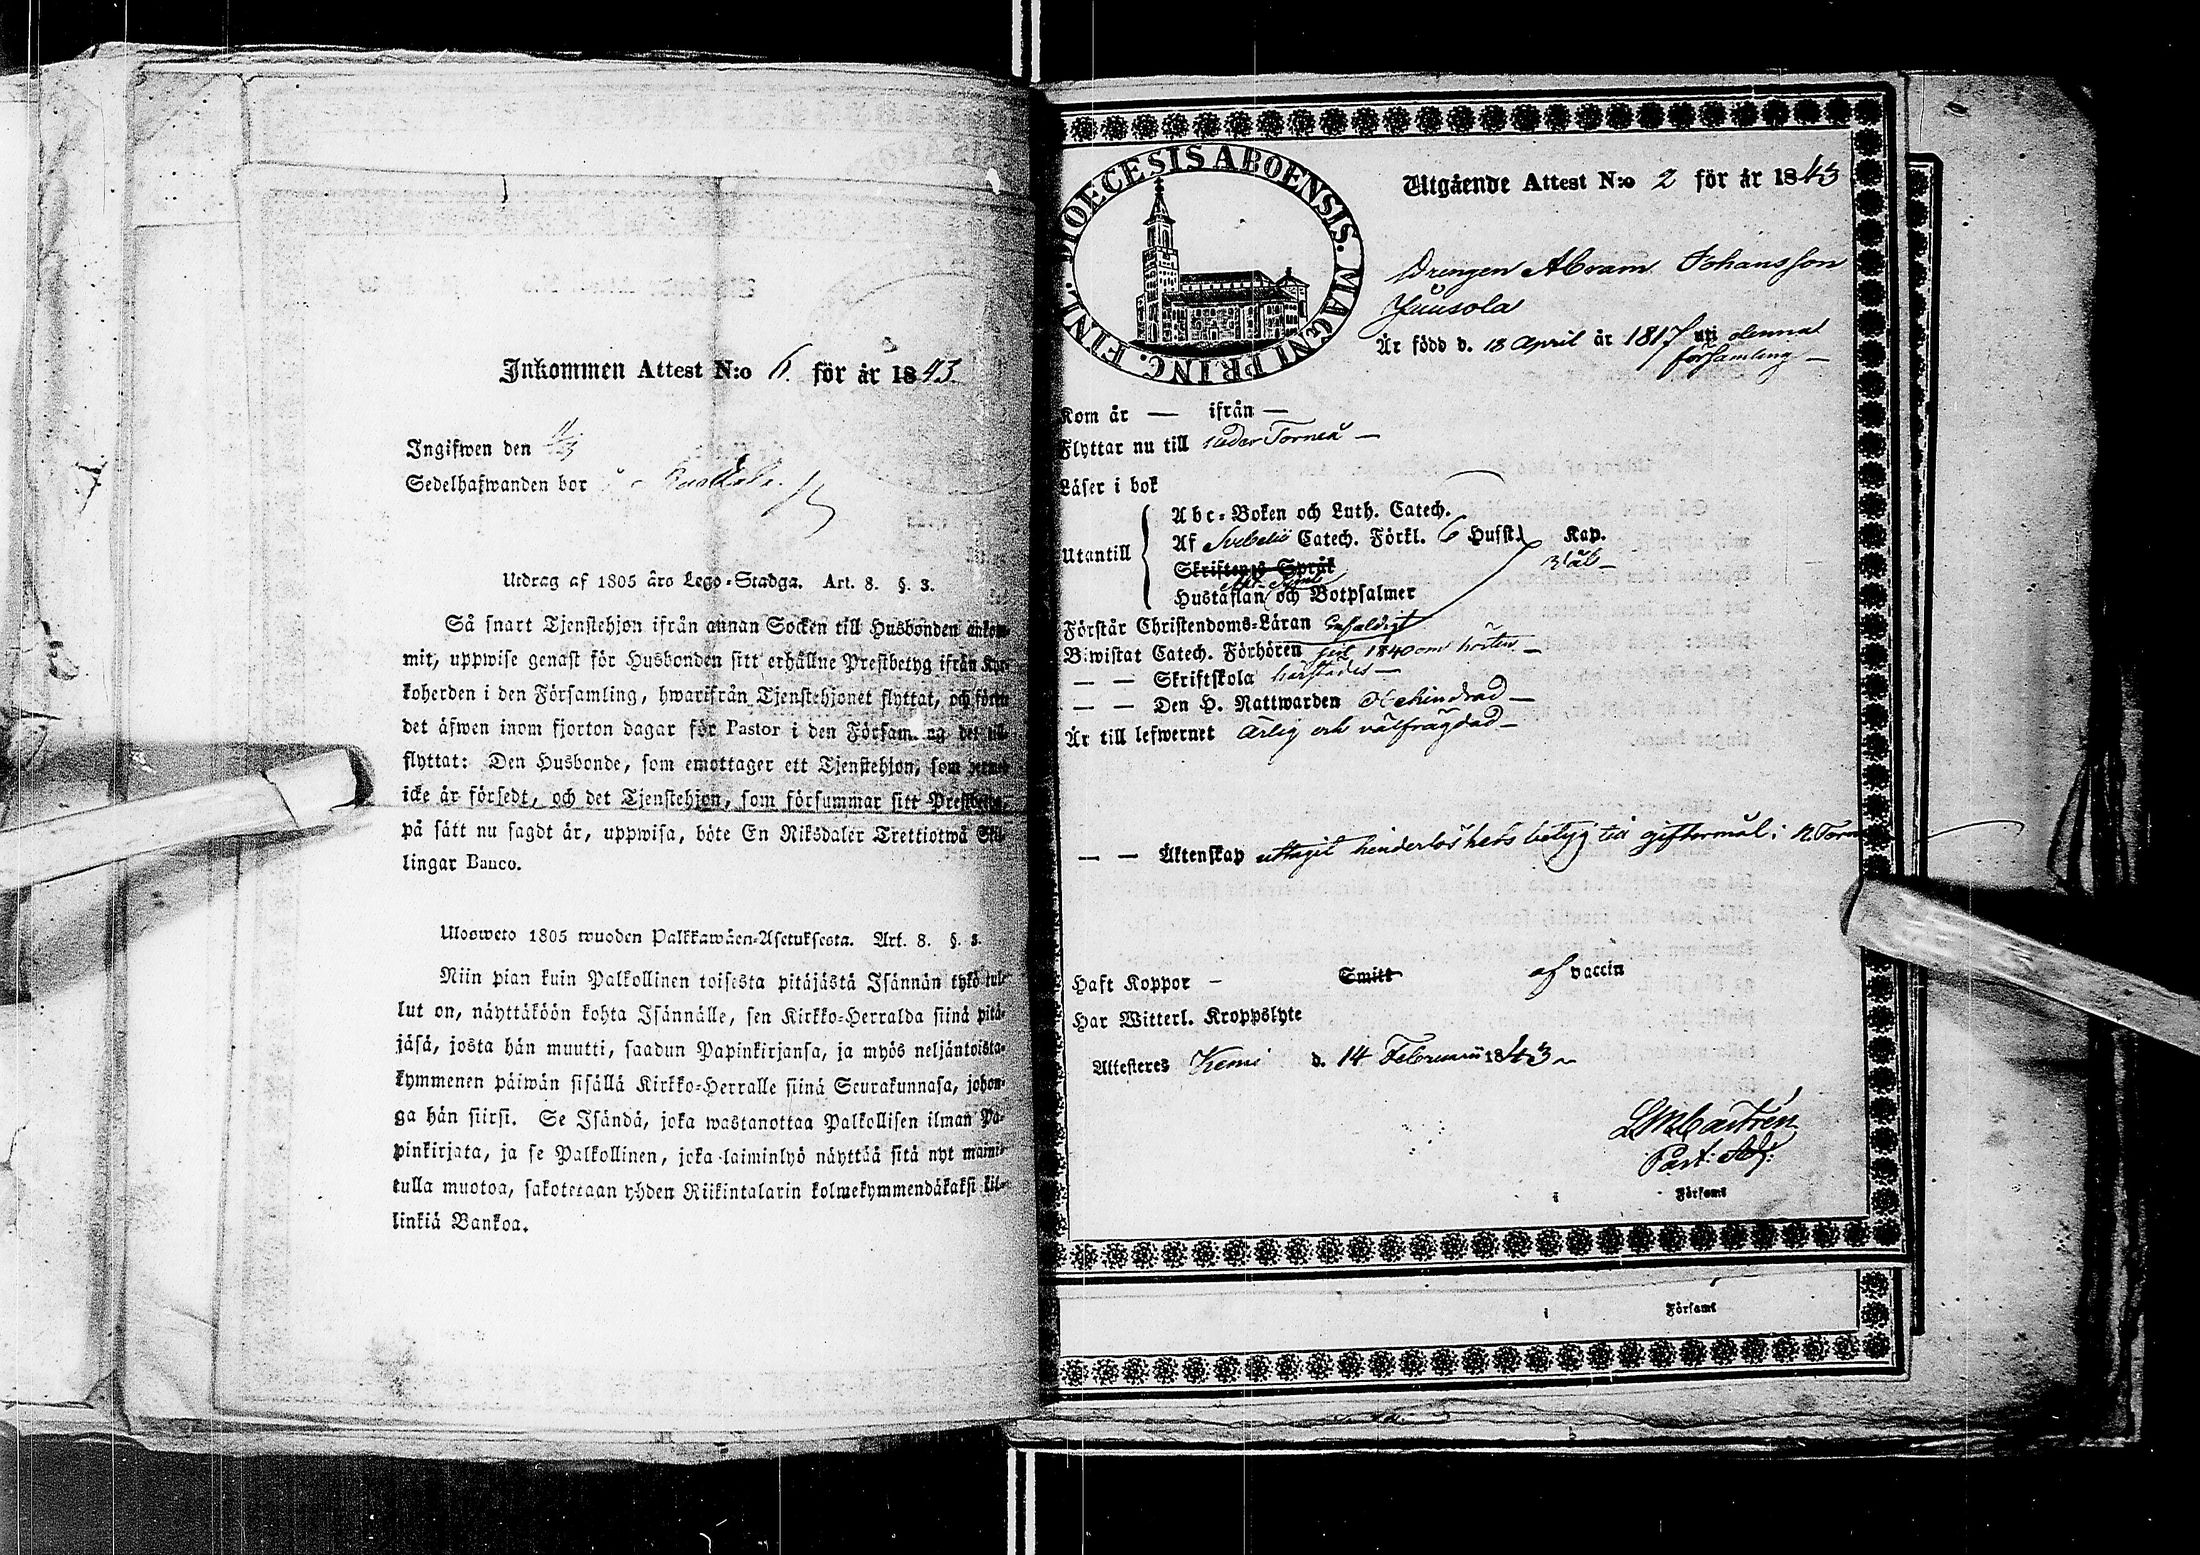 Inkommen Attest N:o 6. för år 1843.
Ingifwen den
Sedelhafwanden bor i
Utdrag af 1805 års Lego-Stadga. Art. 8. §. 3.
Så snart Tjenstehjon ifrån annan Socken till Husbonden ankom-
mit, uppwise genast för Husbonden sitt erhållne Prestbetyg ifrån Kyr-
koherden i den Församling, hwarifrån Tjenstehjonet flyttat, och förete
det äfwen inom fjorton dagar för Pastor i den Församling det till-
flyttat: Den Husbonde, som emottager ett Tjenstehjon, som dermed
icke är försedt, och det Tjenstehjon, som försummar sitt Prestbetyg,
på sätt nu sagdt är, uppwisa, böte En Riksdaler Trettiotwå Skil-
lingar Banco.
Ulosweto 1805 wuoden Palkkawäen-Asetuksesta. Art. 8. §. 3.
Niin pian kuin Palkollinen toisesta pitäjästä Isännän tykö tul-
lut on, näyttäköön kohta Isännälle, sen Kirkko-Herralda siinä pitä-
jäsä, josta hän muutti, saadun Papinkirjansa, ja myös neljäntoista-
kymmenen päiwän sisällä Kirkko-Herralle siinä Seurakunnasa, johon-
ga hän siirsi. Se Isändä, joka wastanottaa Palkollisen ilman Pa-
pinkirjata, ja se Palkollinen, joka laiminlyö näyttää sitä nyt maini-
tulla muotoa, sakotetaan yhden Riikintalarin kolmekymmendäkaksi kil-
linkiä Bankoa.
DIOECESIS ABOENSIS. MAGNI PRINC. FINL.
Utgående Attest N:o 2 för år 1843
Drengen Abram Johansson
Juusola
Är född d. 18 April år 1817 uti denna
församling —
Kom år — ifrån —
Flyttar nu till Neder Torneå —
Läser i bok
Abc-Boken och Luth. Catech.
Utantill
Af Svebelii Catech. Förkl. 6 Hufst. Kap.
Skriftenes Språk
Hustaflan och Botpsalmer
Förstår Christendoms-Läran enfaldigt
Biwistat Catech. Förhören 1840 om hösten —
— — Skriftskola härstädes —
— — Den H. Nattwarden Ohehindrad —
Är till lefwernet Ärlig och välfrägdad —
— — Äktenskap uttagit hinderlöshets betyg till giftermål i N. Torneå
Haft Koppor — Smitt af vaccin
Har Witterl. Kroppslyte
Attesteres Kemi d. 14 Februarii 1843
LM Castrén
Past: Adj:
i Församl
i Församl